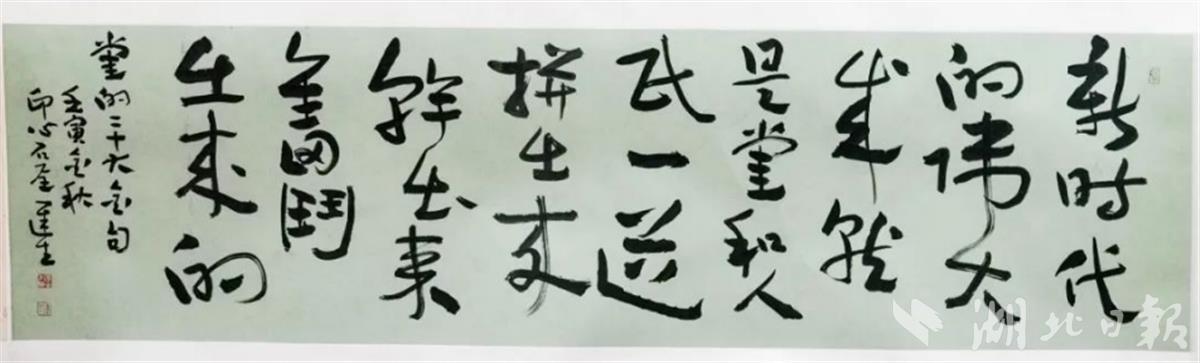 新时代
的伟大
成就
是党和人
民一道
拼出来
幹出来
奮鬥
出来的
党的二十大金句
壬寅金秋
印心石屋
湖北日報